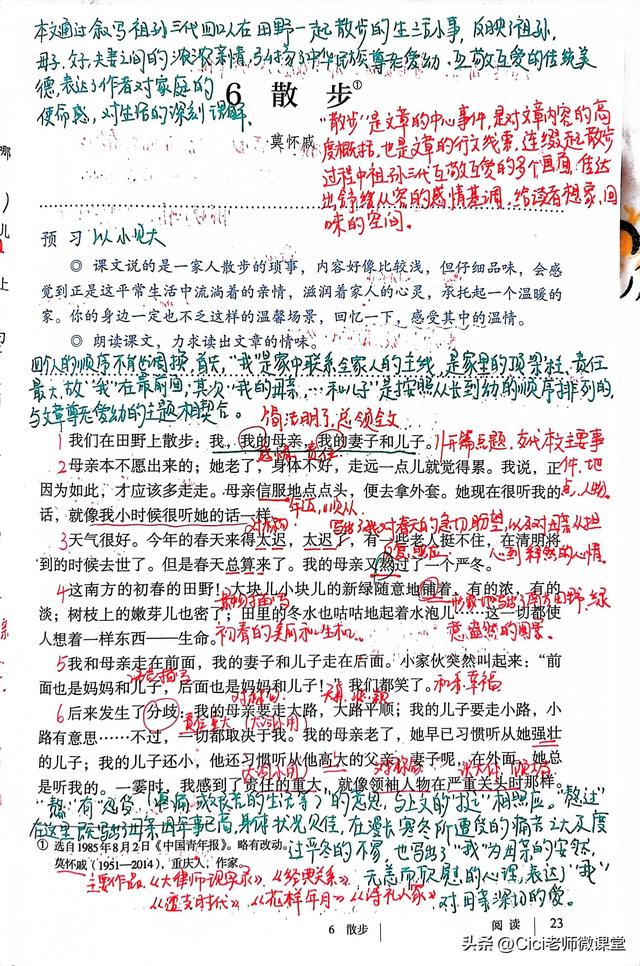 本文通过叙写祖孙三代四口人在田野一起散步的生活小事，反映了祖孙、
母子、夫妻之间的浓浓亲情，弘扬了中华民族尊老爱幼、互敬互爱的传统美
德，表达了作者对家庭的
使命感，对生活的深刻理解。
6 散步①
莫怀戚
"散步"是文章的中心事件，是对文章内容的高
度概括，也是文章的行文线索，连缀起散步
过程中祖孙三代互敬互爱的多个画面，传达
出舒缓从容的感情基调，给读者想象、回
味的空间。
预习 以小见大
◎ 课文说的是一家人散步的琐事，内容好像比较浅，但仔细品味，会感
觉到正是这平常生活中流淌着的亲情，滋润着家人的心灵，承托起一个温暖的
家。你的身边一定也不乏这样的温馨场景，回忆一下，感受其中的温情。
◎ 朗读课文，力求读出文章的情味。
四个人的顺序不能随意调换，首先，"我"是家中联系全家人的主线，是家里的顶梁柱，责任
最大，故"我"在最前面；其次，"我的母亲，…和儿子"是按照从长到幼的顺序排列的，
与文章尊老爱幼的主题相契合。
简洁明了，总领全文
1 我们在田野上散步：我，我的母亲，我的妻子和儿子。开篇点题，交代本文主要事
件、地
点、人物。
2 母亲本不愿出来的；她老了，身体不好，走远一点儿就觉得累。我说，正
因为如此，才应该多走走。母亲信服地点点头，便去拿外套。她现在很听我的
话，就像我小时候很听她的话一样。
写出了我对春天的急切盼望，以及对母亲从担
心到释然的心情。
3 天气很好。今年的春天来得太迟，太迟了，有一些老人挺不住，在清明将
到的时候去世了。但是春天总算来了。我的母亲又熬过了一个严冬。
4 这南方的初春的田野！大块儿小块儿的新绿随意地铺着，有的浓，有的
淡；树枝上的嫩芽儿也密了；田里的冬水也咕咕地起着水泡儿……这一切都使
人想着一样东西——生命。
初春的美丽和生机。
意盎然的图景。
5 我和母亲走在前面，我的妻子和儿子走在后面。小家伙突然叫起来："前
面也是妈妈和儿子，后面也是妈妈和儿子！"我们都笑了。和乐幸福
6 后来发生了分歧：我的母亲要走大路，大路平顺；我的儿子要走小路，小
路有意思……不过，一切都取决于我。我的母亲老了，她早已习惯听从她强壮
的儿子；我的儿子还小，他还习惯听从他高大的父亲；妻子呢，在外面，她总
是听我的。一霎时，我感到了责任的重大，就像领袖人物在严重关头时那样。
①选自1985年8月2日《中国青年报》。略有改动。
莫怀戚（1951—2014），重庆人，作家。
过严冬的不容易，也写出了"我"为母亲的安然
无恙而欣慰的心理，表达了"我"
对母亲深切的爱。
主要作品《大律师现实录》《经典关系》
《透支时代》《花样年月》《诗礼人家》
6 散步
阅读
23
头条@Cici老师微课堂